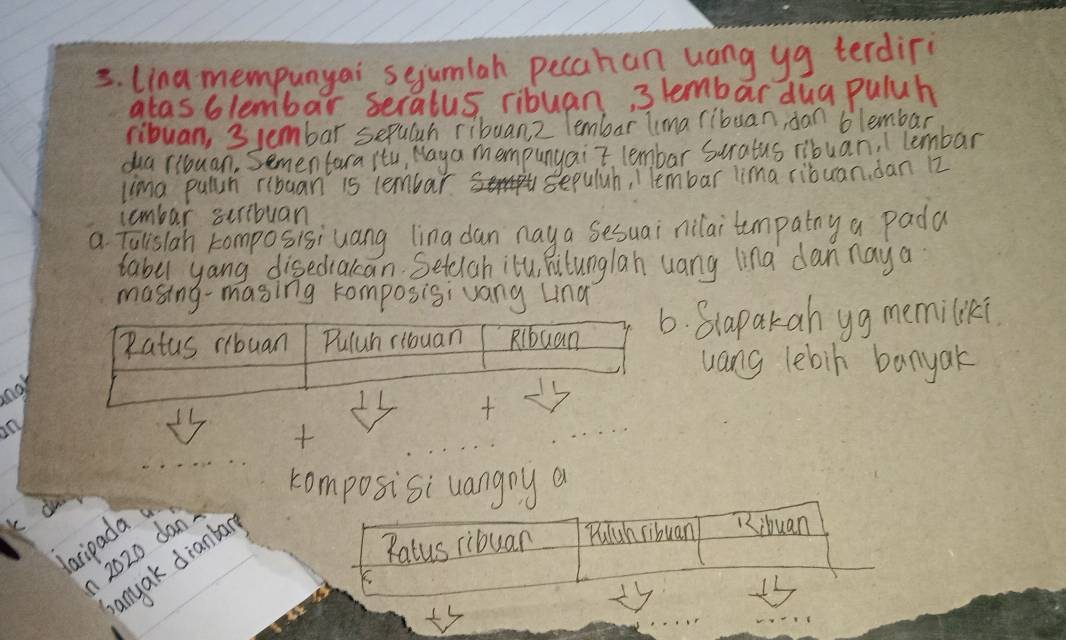 3. Lina mempunyai sejumlah pecahan uang yg terdiri
atas 6 lembar seratus ribuan, 3 lembar dua puluh
ribuan, 3 lembar sepuluh ribuan, 2 lembar lima ribuan, dan 6 lembar
dua ribuan. Sementara itu, Naya mempunyai 7 lembar seratus ribuan, 1 lembar
lima puluh ribuan 15 lembar sepuluh, 1 lembar lima ribuan, dan 12
lembar seribuan
a. Tulislah komposisi uang lina dan naya sesuai nilai tempatnya pada
tabel yang disediakan. Setelah itu, hitunglah uang lina dan naya
masing-masing komposisi uang Lina
b. Siapakah yg memiliki
uang lebih banyak
Ratus ribuan Puluh ribuan Ribuan
+ +
........ ...... ......
komposisi uangnya
Ratus ribuan Puluh ribuan Ribuan
...... ......
k
daripada
n 2020 dan
banyak diantara
an